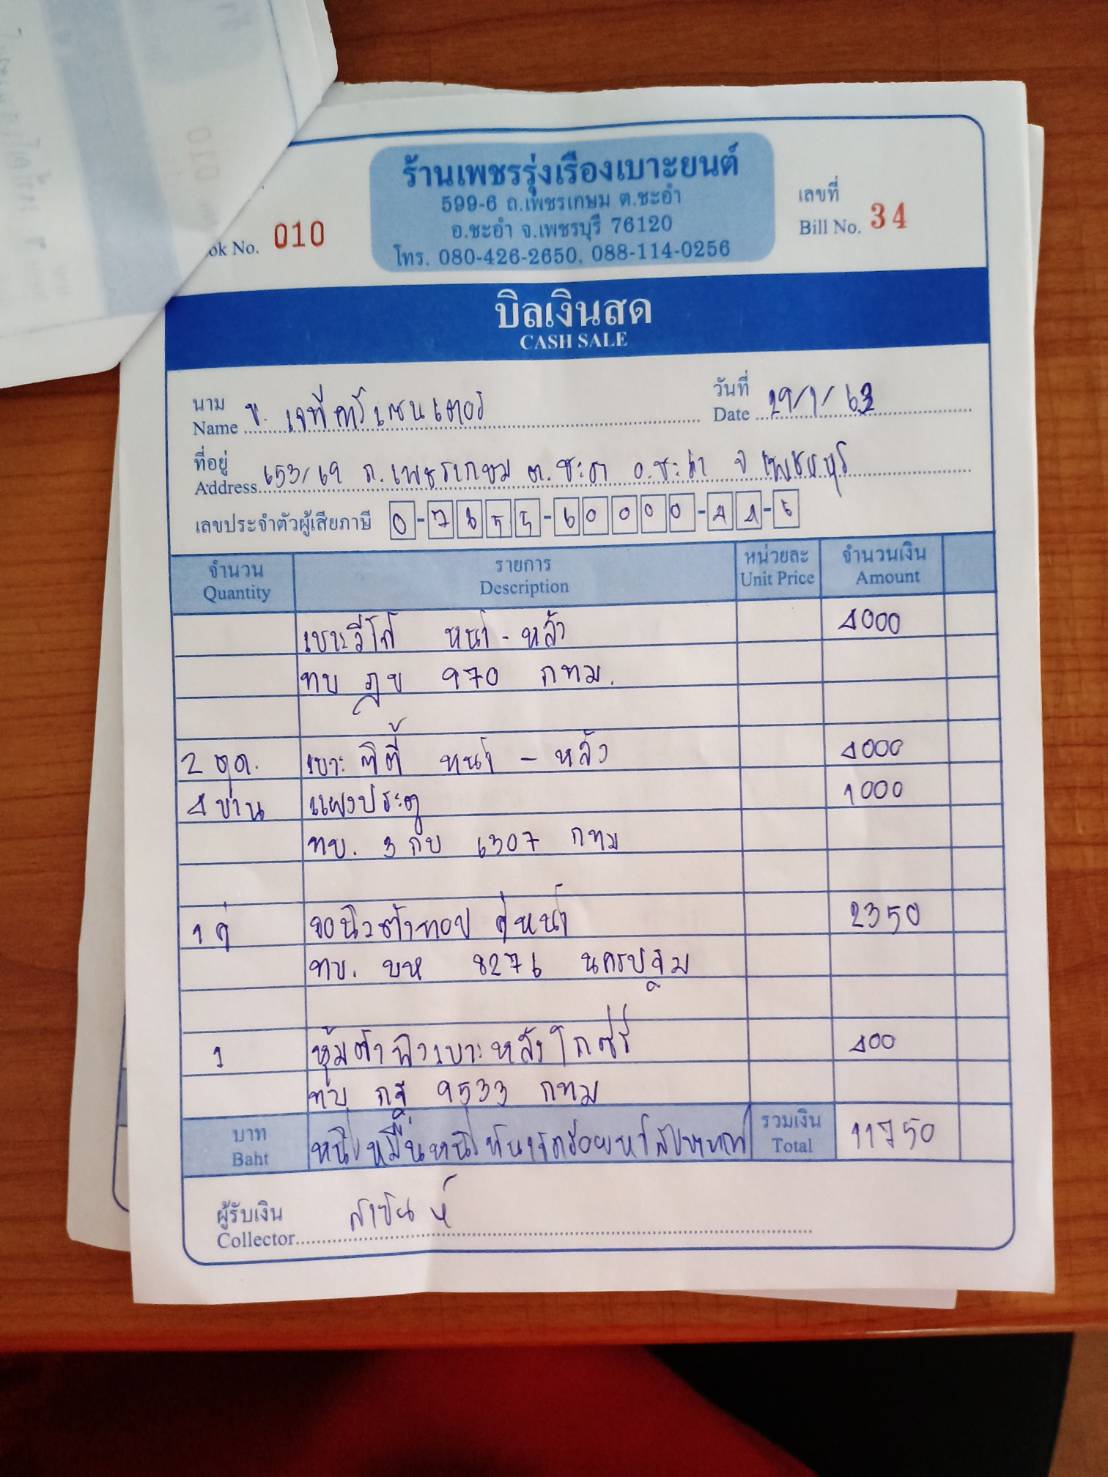 ร้านเพชรรุ่งเรืองเบาะยนต์
599-6 ถ.เพชรเกษม ต.ชะอำ
อ.ชะอำ จ.เพชรบุรี 76120
โทร. 080-426-2650, 088-114-0256
ok No. 010
เลขที่
Bill No. 34
บิลเงินสด
CASH SALE
นาม
Name บ. เจที คาร์เซนเตอร์
วันที่
Date 29/1/63
ที่อยู่
Address 653/69 ถ.เพชรเกษม ต.ชะอำ อ.ชะอำ จ เพชรบุรี
เลขประจำตัวผู้เสียภาษี 0-7655-60000-44-6
จำนวน รายการ หน่วยละ จำนวนเงิน
Quantity Description Unit Price Amount
เบาะวีโก้ หน้า - หลัง 4000
ทบ 970 กทม.
2 ชุด. เบาะ ซิตี้ หน้า - หลัง 4000
4 บาน แผงประตู 1000
ทบ. 3 กบ 6307 กทม
1 คู่ คู่หน้า 2350
ทบ. บห 8276 นครปฐม
1 หุ้ม เบาะหลัง 400
ทบ 9533 กทม
บาท หนึ่งหมื่นหนึ่งพันเจ็ดร้อยห้าสิบบาท รวมเงิน 11750
Baht Total
ผู้รับเงิน
Collector